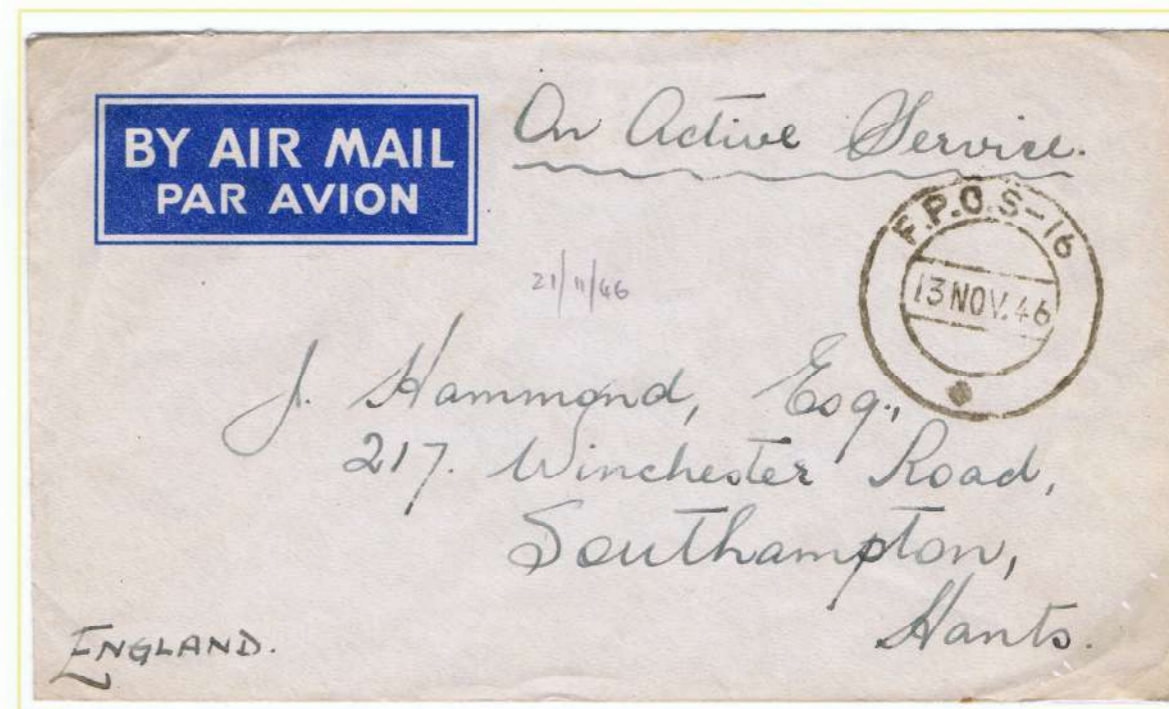 BY AIR MAIL
PAR AVION
On Active Service.
F.P.O. S-16
13 NOV. 46
21/11/46
J. Hammond, Esq.,
217. Winchester Road,
Southampton,
Hants.
ENGLAND.